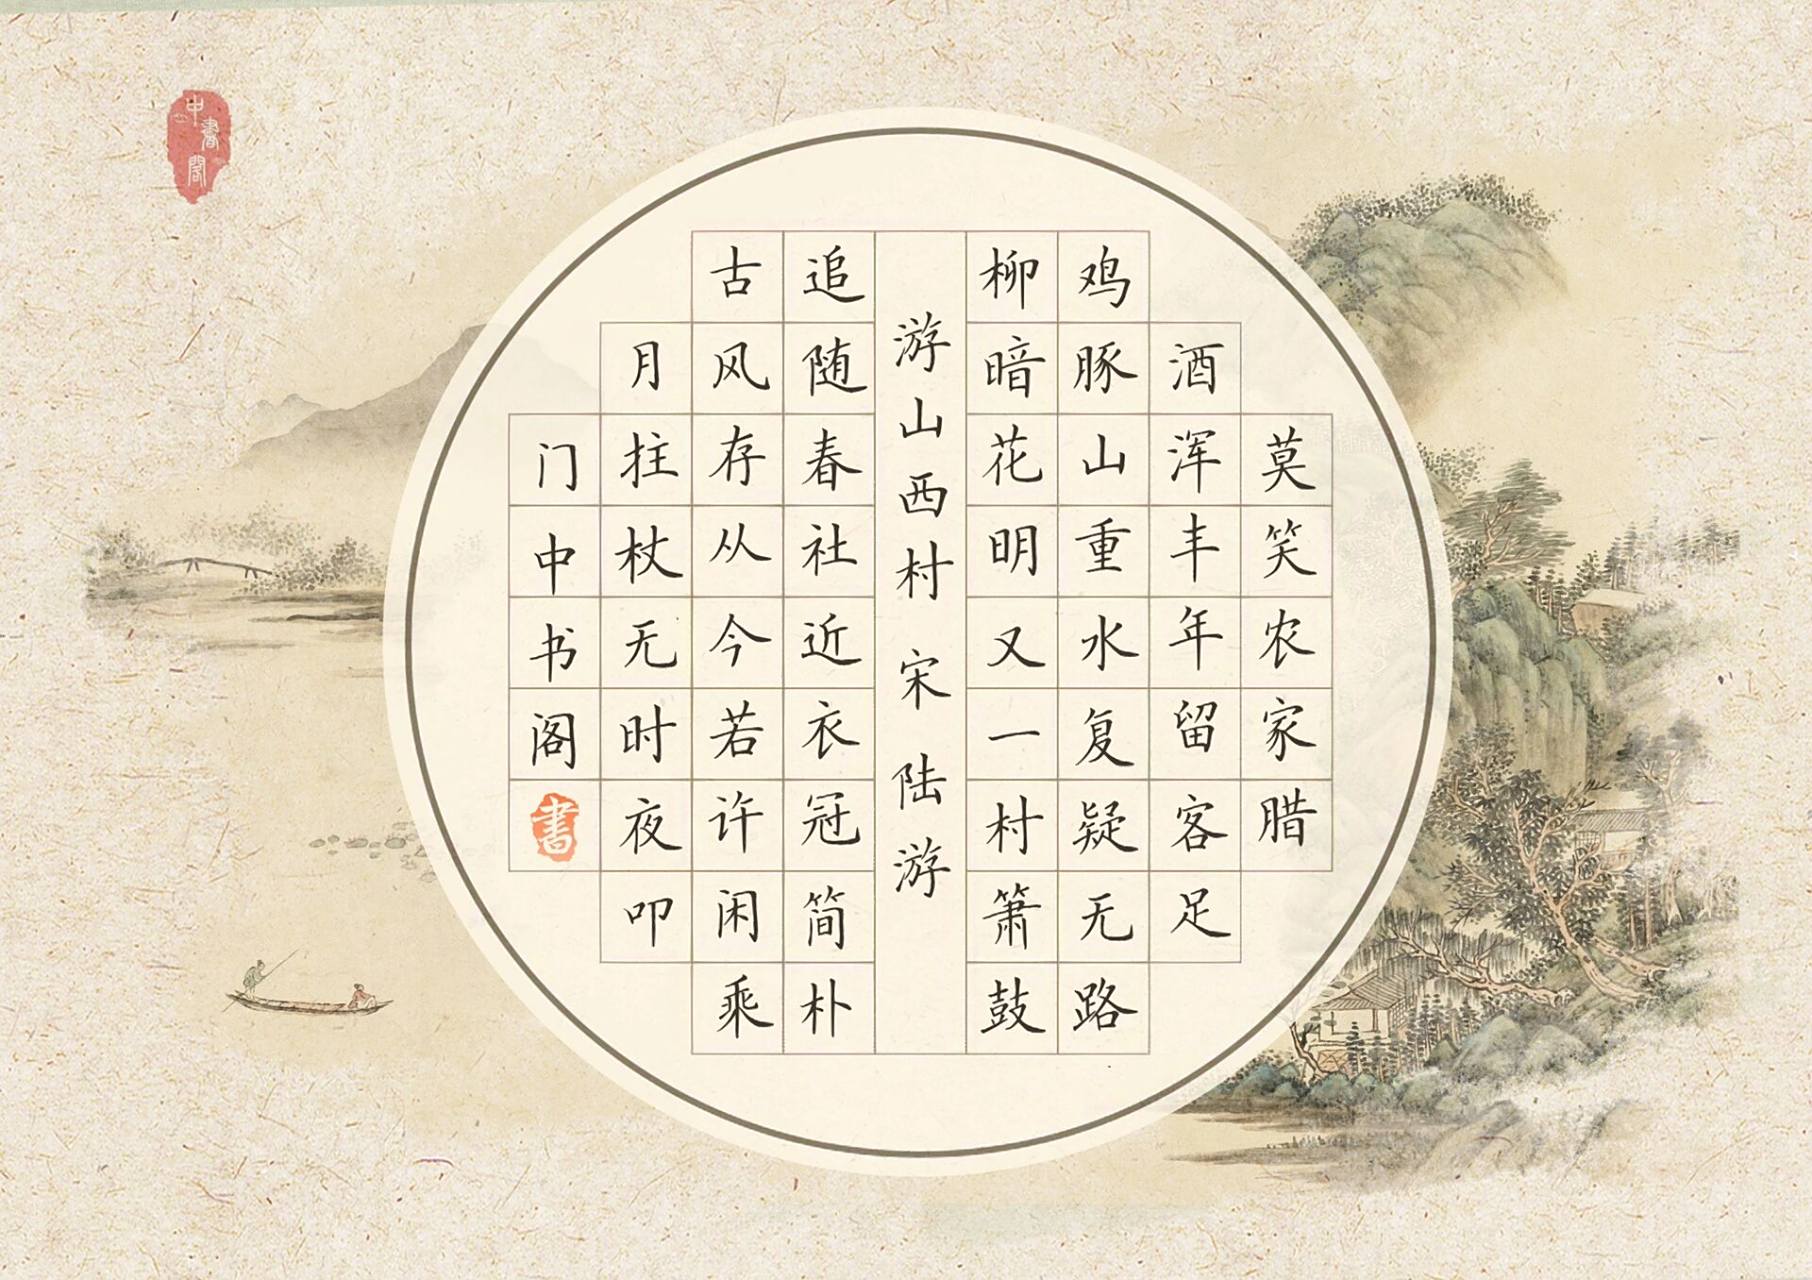 莫笑农家腊
酒浑丰年留客足
鸡豚山重水复疑无路
柳暗花明又一村箫鼓
游山西村 宋 陆游
追随春社近衣冠简朴
古风存从今若许闲乘
月拄杖无时夜叩
门中书阁
書
中書閣